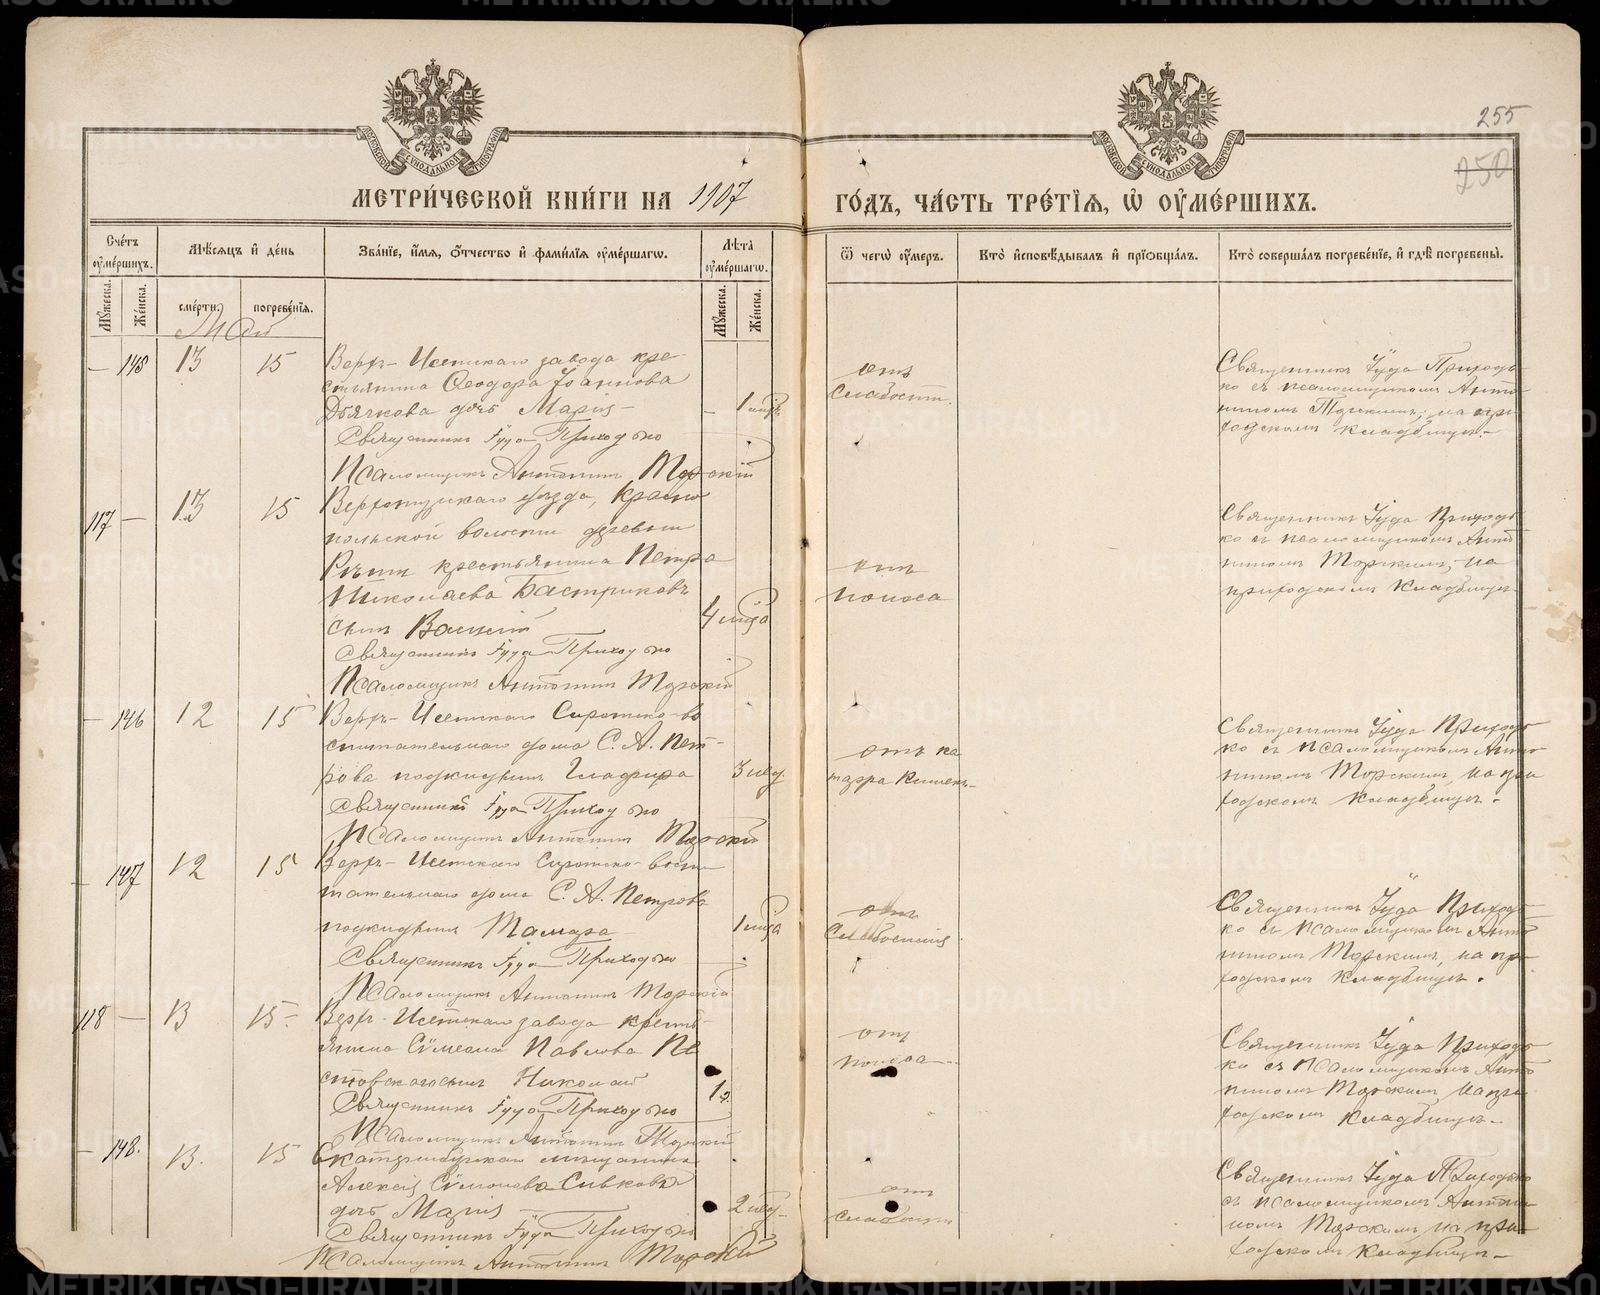 255
250
МЕТРИ́ЧЕСКОЙ КНИ́ГИ НА 1907
ГО́ДЪ, ЧА́СТЬ ТРЕ́ТІѦ, Ѡ҆ ОУ҆МЕ́РШИХЪ.
Сче́тъ оу҆ме́ршихъ.
Мꙋ́жеска.
Же́нска.
Мѣ́сѧцъ и҆ де́нь
сме́рти.
погребе́нїѧ.
Зва́нїе, и҆́мѧ, ѻ҆́тчество и҆ фами́лїѧ оу҆ме́ршагѡ.
Лѣ́та оу҆ме́ршагѡ.
Мꙋ́жеска.
Же́нска.
Ѿ чегѡ̀ оу҆́меръ.
Кто̀ и҆сповѣ́дывалъ и҆ прїѡбща́лъ.
Кто̀ соверша́лъ погребе́нїе, и҆ гдѣ̀ погребены̀.
Май
— 148 13 15
Верхъ-Исетскаго завода кре-
стьянина Ѳеодора Іоаннова
Дьячкова дочь Марія —
— 1 мѣс.
отъ
слабости.
Священникъ Іуда Приходько
Псаломщикъ Антонинъ Торскій
Священникъ Іуда Приходь-
ко съ псаломщикомъ Анто-
ниномъ Торскимъ, на при-
ходскомъ кладбищѣ. —
117 — 13 15
Верхотурскаго уѣзда, Красно
польской волости деревни
крестьянина Петра
Николаева Бастриковъ
сынъ
4 мѣс
отъ
поноса
Священникъ Іуда Приходько
Псаломщикъ Антонинъ Торскій
Священникъ Іуда Приходь-
ко съ псаломщикомъ Анто
ниномъ Торскимъ, на
приходскомъ кладбищѣ
— 146 12 15
Верхъ-Исетскаго Сиротско-во
спитательнаго дома С. А. Пет-
рова подкидышъ Глафира
3 нед.
отъ ка
тарра кишекъ
Священникъ Іуда Приходько
Псаломщикъ Антонинъ Торскій
Священникъ Іуда Приходь
ко съ псаломщикомъ Анто
ниномъ Торскимъ, на при
ходскомъ кладбищѣ.
— 147 12 15
Верхъ-Исетскаго Сиротско-воспи
тательнаго дома С. А. Петрова
подкидышъ Тамара —
1 мѣс
отъ
слабости
Священникъ Іуда Приходько
Псаломщикъ Антонинъ Торскій
Священникъ Іуда Приходь
ко съ псаломщикомъ Анто
ниномъ Торскимъ, на при
ходскомъ кладбищѣ.
118 — 13 15
Верхъ-Исетскаго завода кресть
янина Сѵмеона Павлова Пе
стовскаго сынъ Николай
1 г.
отъ
поноса
Священникъ Іуда Приходько
Псаломщикъ Антонинъ Торскій
Священникъ Іуда Приходь
ко съ псаломщикомъ Анто
ниномъ Торскимъ на при
ходскомъ кладбищѣ —
— 148. 13. 15
Екатеринбургскаго мѣщанина
Алексія Сѵмонова Сивкова
дочь Марія —
2 нед.
отъ
слабости
Священникъ Іуда Приходько
Псаломщикъ Антонинъ Торскій
Священникъ Іуда Приходько
съ псаломщикомъ Антони-
номъ Торскимъ на при-
ходскомъ кладбищѣ —
METRIKI.GASO-URAL.RU